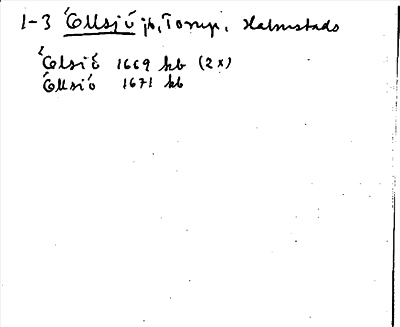 1-3 Ellsjö jb, Torup, Halmstads
Elsiö 1669 kb (2x)
Ellsiö 1671 kb